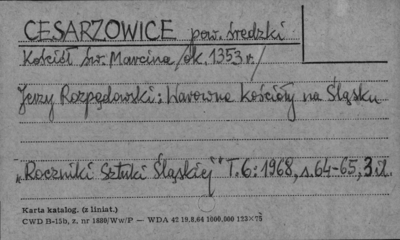 CESARZOWICE pow. średzki
Kościół św. Marcina /ok. 1353 r./
Jerzy Rozpędowski: Warowne Kościoły na Śląsku
„Roczniki Sztuki Śląskiej" T. 6: 1968, s. 64-65, 3 il.
Karta katalog. (z liniat.)
CWD B-15b, z. nr 1880/Ww/P — WDA 42 19.8.64 1000.000 123×75